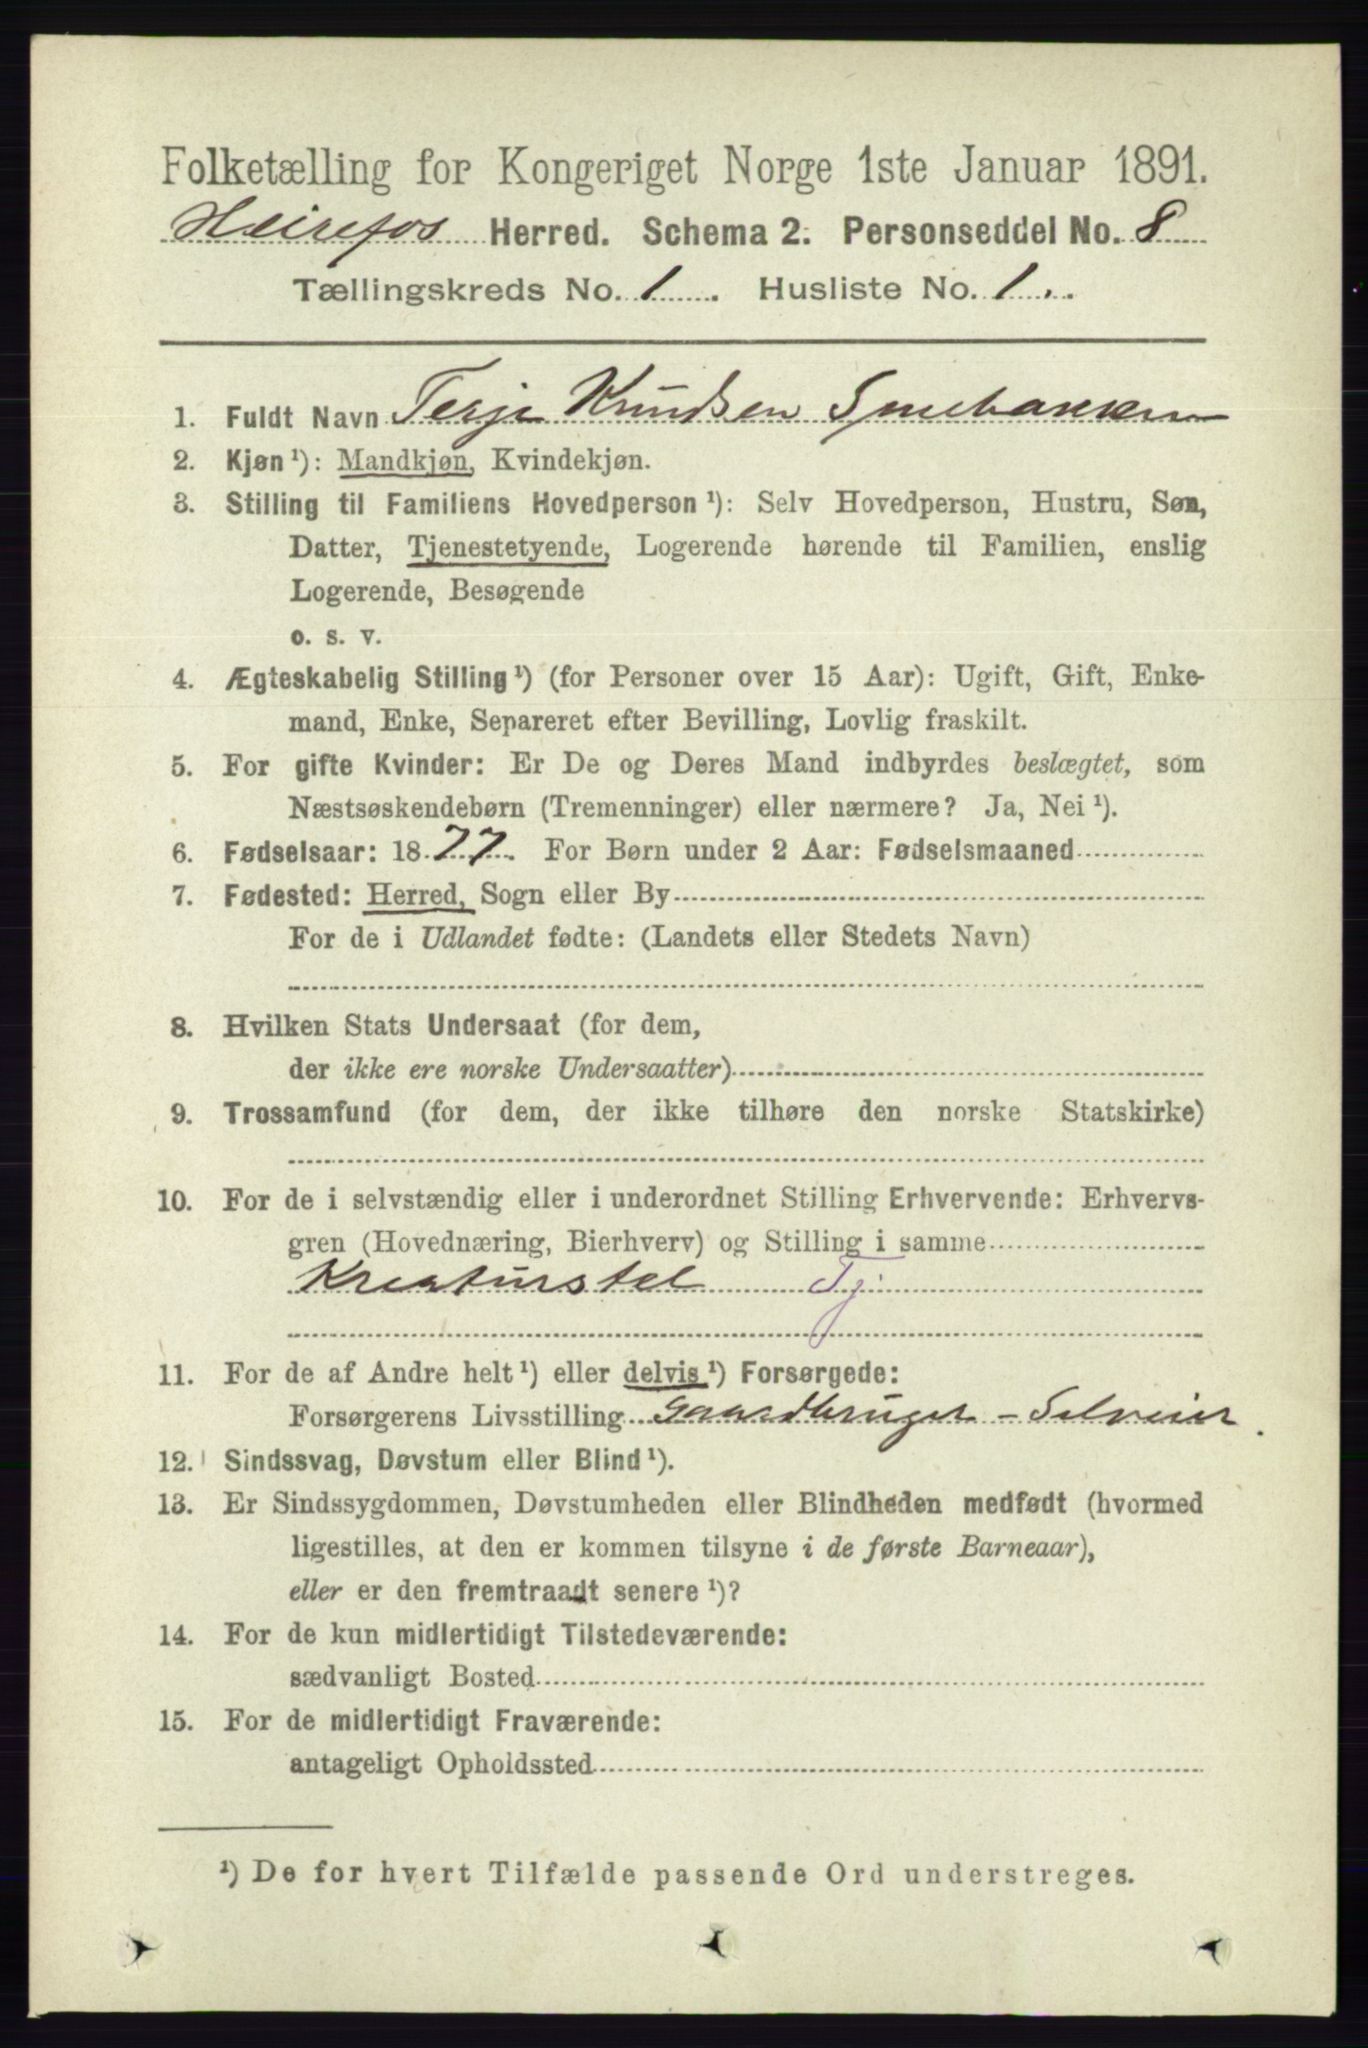 Folketælling for Kongeriget Norge 1ste Januar 1891.
Heirefos Herred. Schema 2. Personseddel No. 8
Tællingskreds No. 1. Husliste No. 1.
1. Fuldt Navn Terje Knudsen
2. Kjøn ¹): Mandkjøn, Kvindekjøn.
3. Stilling til Familiens Hovedperson ¹): Selv Hovedperson, Hustru, Søn,
Datter, Tjenestetyende, Logerende hørende til Familien, enslig
Logerende, Besøgende
o. s. v.
4. Ægteskabelig Stilling ¹) (for Personer over 15 Aar): Ugift, Gift, Enke-
mand, Enke, Separeret efter Bevilling, Lovlig fraskilt.
5. For gifte Kvinder: Er De og Deres Mand indbyrdes beslægtet, som
Næstsøskendebørn (Tremenninger) eller nærmere? Ja, Nei ¹).
6. Fødselsaar: 1877. For Børn under 2 Aar: Fødselsmaaned
7. Fødested: Herred, Sogn eller By
For de i Udlandet fødte: (Landets eller Stedets Navn)
8. Hvilken Stats Undersaat (for dem,
der ikke ere norske Undersaatter)
9. Trossamfund (for dem, der ikke tilhøre den norske Statskirke)
10. For de i selvstændig eller i underordnet Stilling Erhvervende: Erhvervs-
gren (Hovednæring, Bierhverv) og Stilling i samme
Kreaturstel Tj:
11. For de af Andre helt ¹) eller delvis ¹) Forsørgede:
Forsørgerens Livsstilling Gaardbruger - Selveier.
12. Sindssvag, Døvstum eller Blind ¹).
13. Er Sindssygdommen, Døvstumheden eller Blindheden medfødt (hvormed
ligestilles, at den er kommen tilsyne i de første Barneaar),
eller er den fremtraadt senere ¹)?
14. For de kun midlertidigt Tilstedeværende:
sædvanligt Bosted
15. For de midlertidigt Fraværende:
antageligt Opholdssted
¹) De for hvert Tilfælde passende Ord understreges.